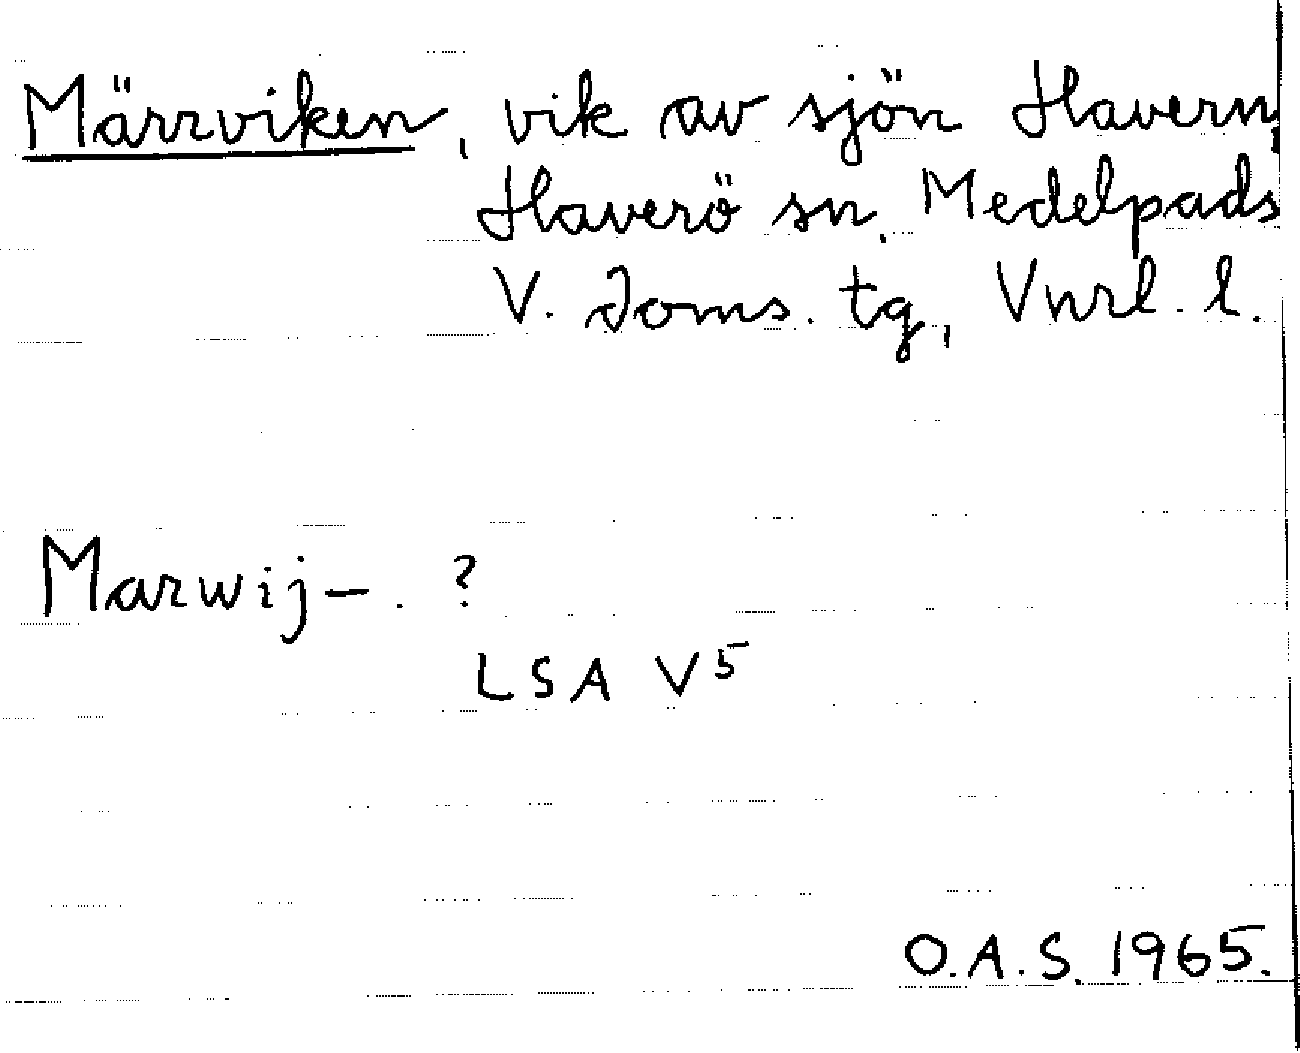 Märrviken, vik av sjön Havern,
Haverö sn. Medelpads
V. doms. tg, Vnrl. l.
Marwij-. ?
LSA V5
O.A.S. 1965.